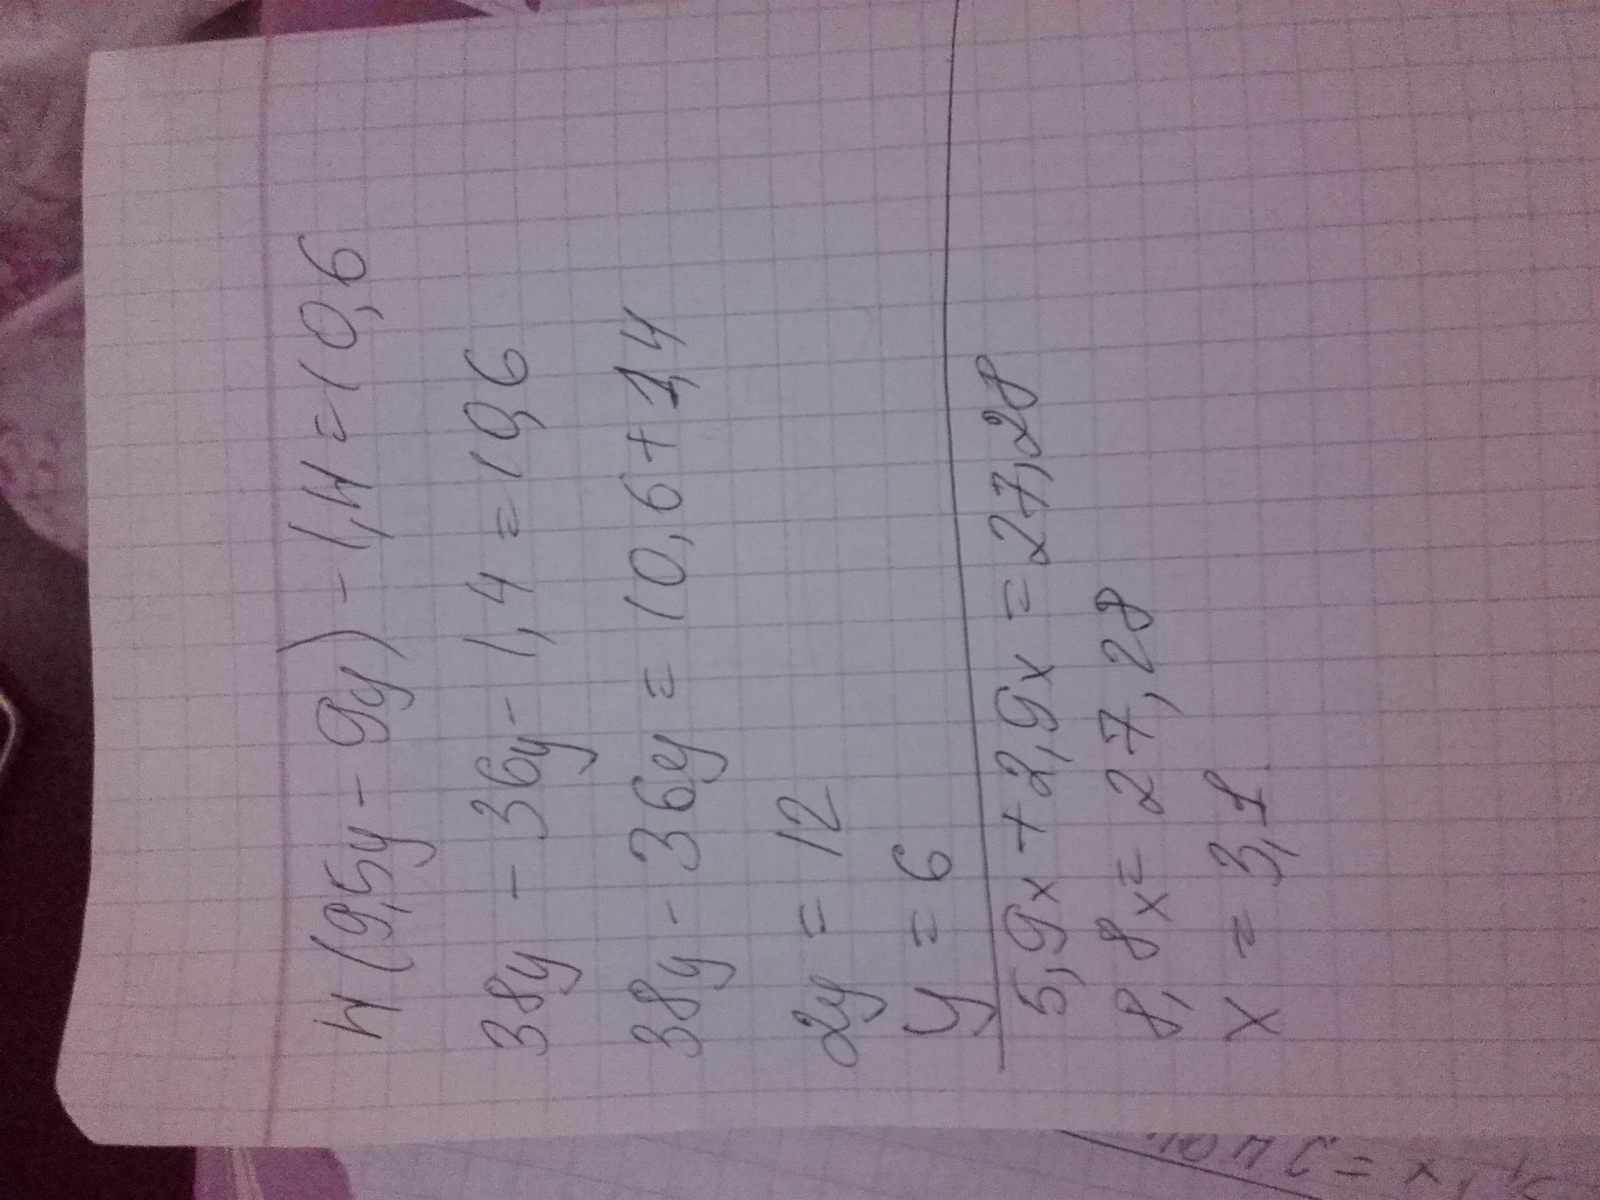 4(9,5y - 9y) - 1,4 = 10,6
38y - 36y - 1,4 = 10,6
38y - 36y = 10,6 + 1,4
2y = 12
y = 6
5,9x + 2,9x = 27,28
8,8x = 27,28
x = 3,1